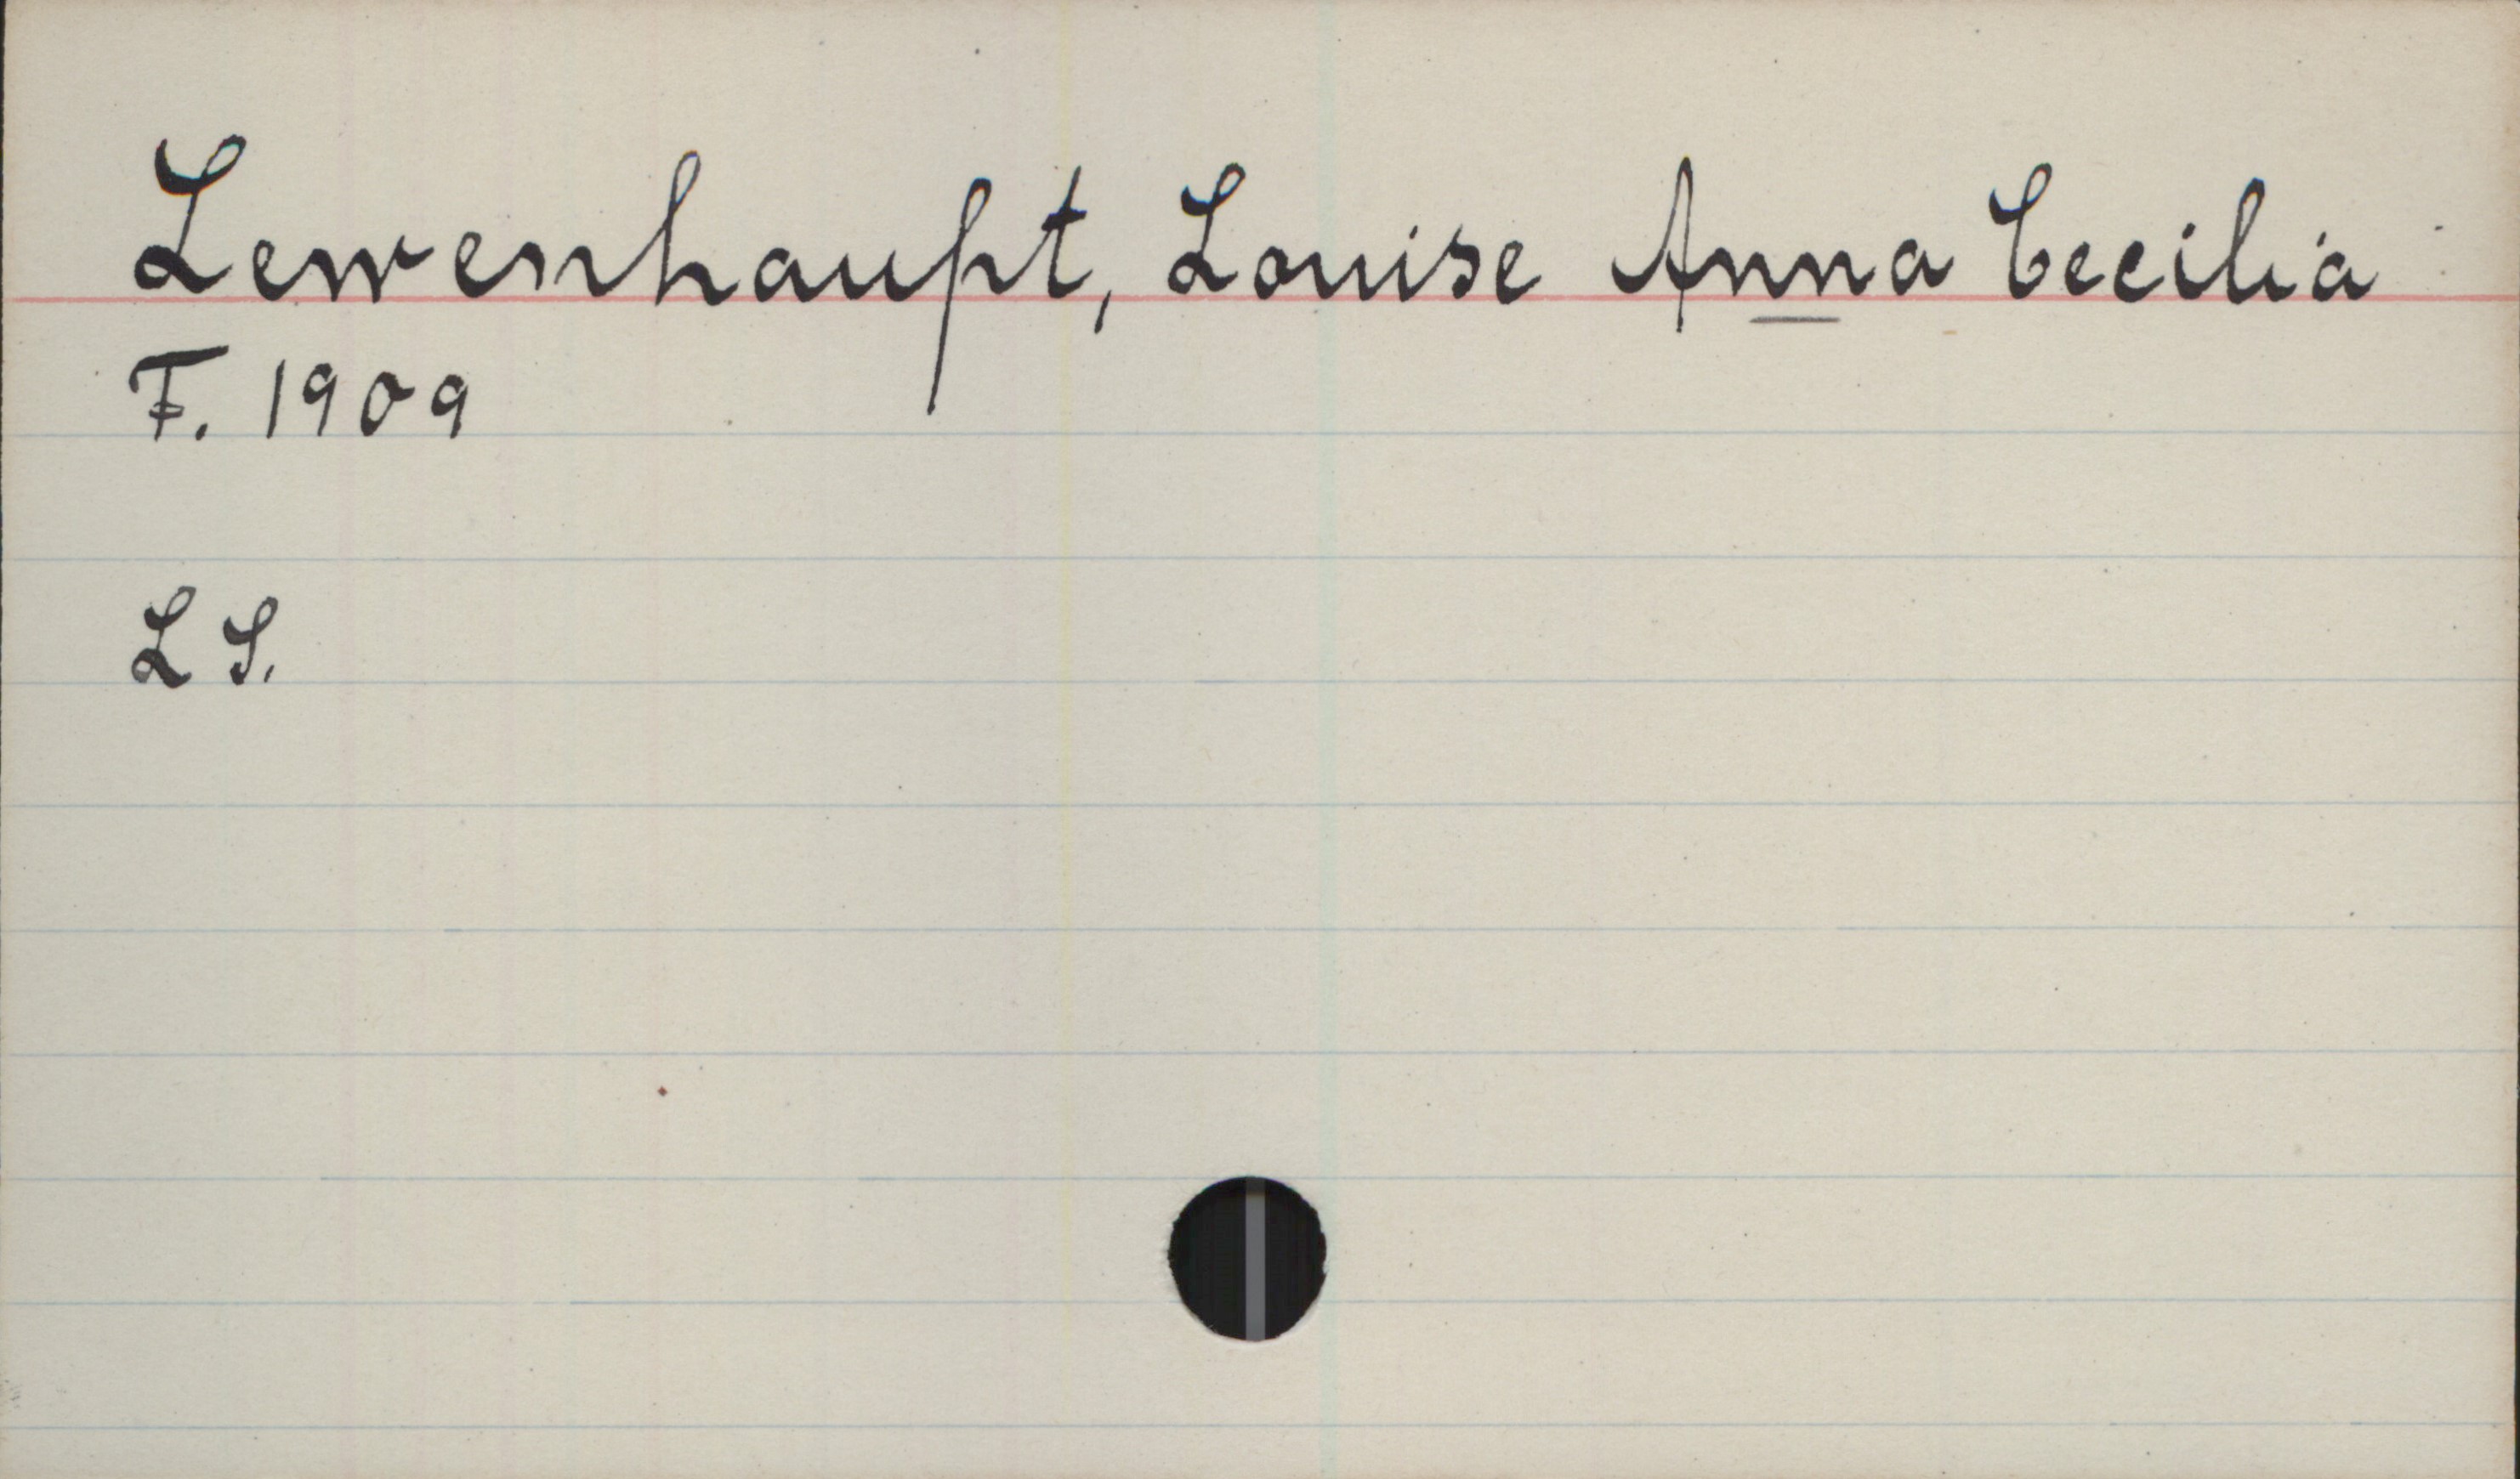 Lewenhaupt, Louise Anna Cecilia
F. 1909
L S.